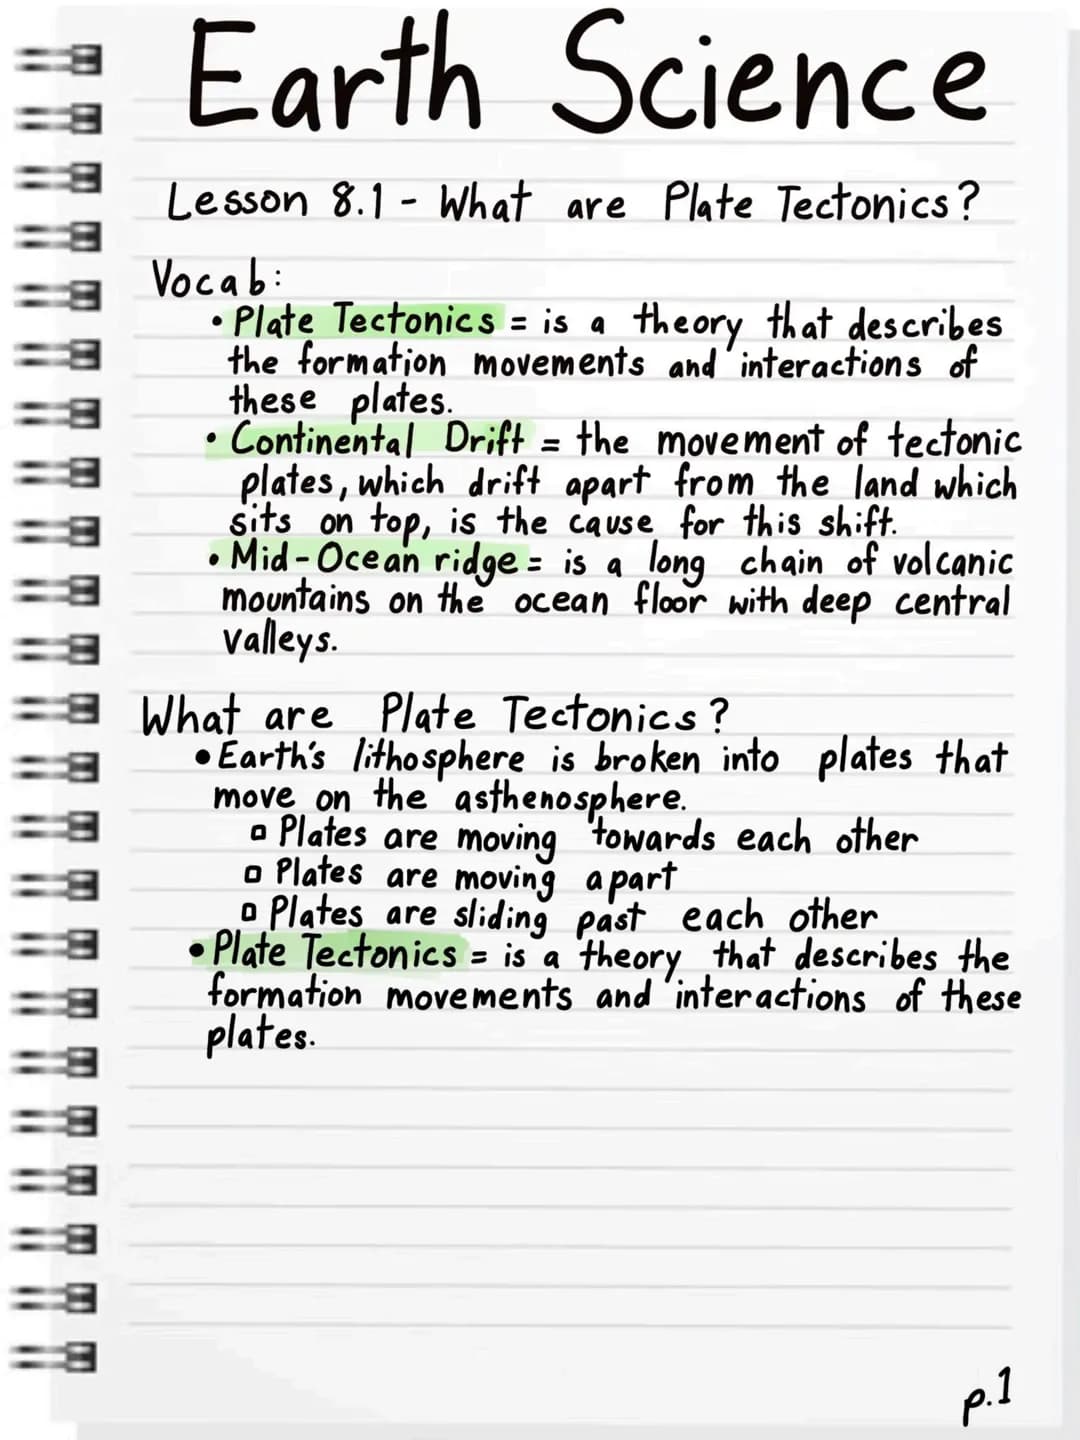 Earth Science
Lesson 8.1 - What are Plate Tectonics?
Vocab:
• Plate Tectonics = is a theory that describes
the formation movements and interactions of
these plates.
• Continental Drift = the movement of tectonic
plates, which drift apart from the land which
sits on top, is the cause for this shift.
• Mid-Ocean ridge = is a long chain of volcanic
mountains on the ocean floor with deep central
valleys.
What are Plate Tectonics?
• Earth's lithosphere is broken into plates that
move on the asthenosphere.
▫ Plates are moving towards each other
▫ Plates are moving apart
▫ Plates are sliding past each other
• Plate Tectonics = is a theory that describes the
formation movements and interactions of these
plates.
p.1